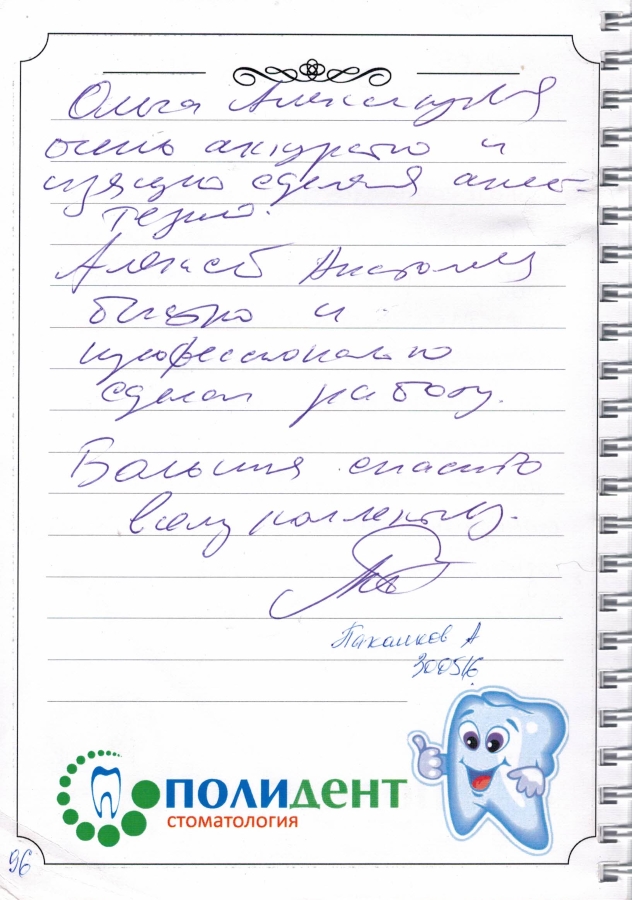 Ольга Александровна
очень аккуратно и
изящно сделала анес-
тезию.
Алексей Анатольевич
быстро и
профессионально
сделал работу.
Большое спасибо
всему коллективу.
А
30.05.16.
ПОЛИДЕНТ
СТОМАТОЛОГИЯ
96